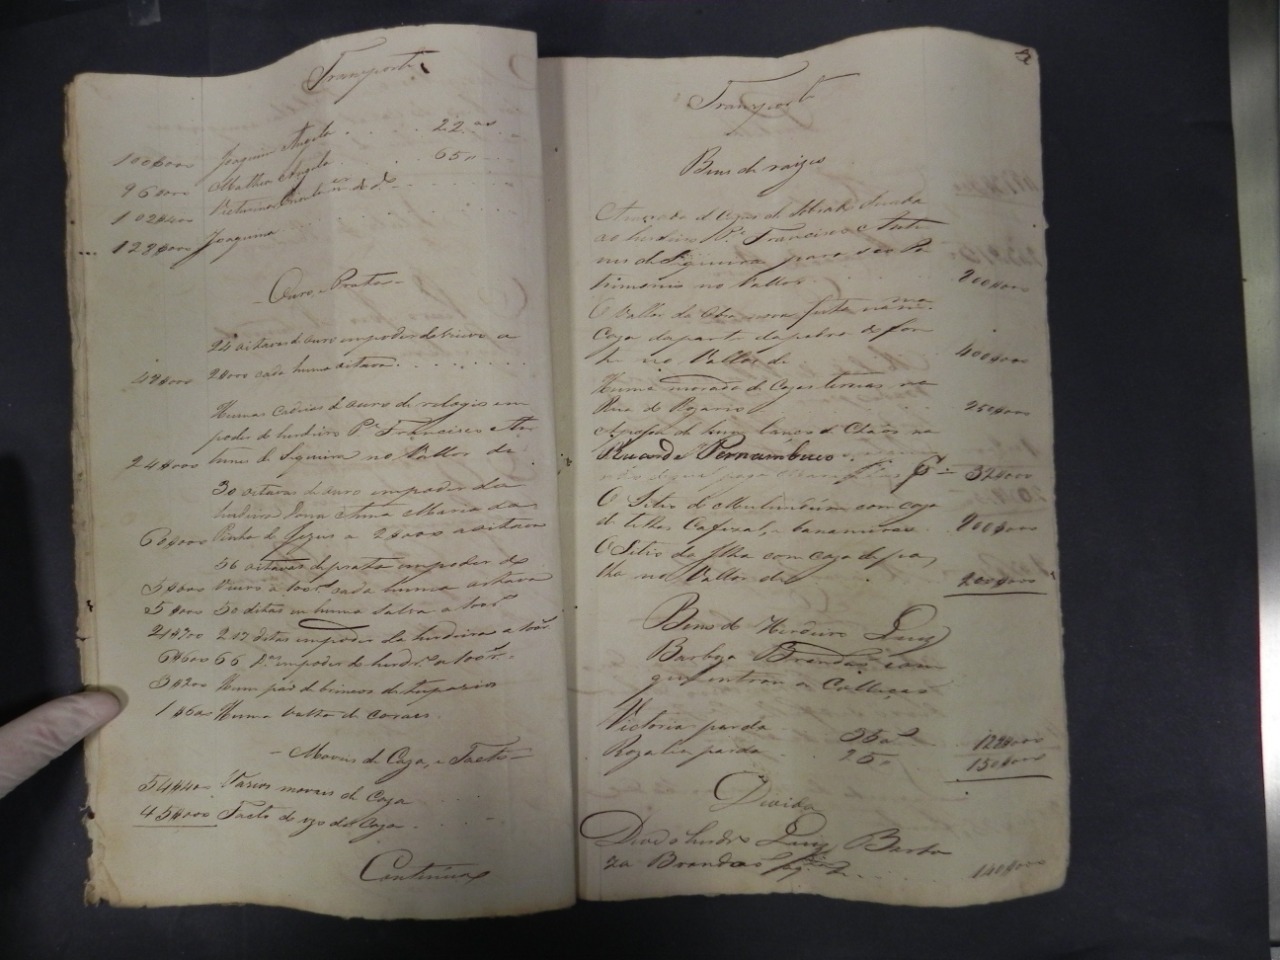 Transporte
100$000 Joaquim Angola . . . 22 as
96$000 Matheus Angola . . . 65 "
102$400 Victorina
128$000 Joaquina
- Ouro e Prata -
24 oitavas de ouro em poder do viuvo a
48$000 2$000 cada huma oitava
Humas de ouro de relogio em
poder do herdeiro Pe Francisco An
24$000 tunes de Siqueira no Vallor de
30 oitavas de ouro em poder da
herdeira Dona Anna Maria da
60$000 de Jezus a 2$000 a oitava
56 oitavas de prata em poder do
5$600 Viuvo a 100rs cada huma oitava
5$000 50 ditas em huma salva a 100rs
21$700 217 ditas em poder da herdeira a 100rs
6$600 66 das em poder do herdro a 100rs
3$200 Hum par de brincos de topazio
Huma volta de coraes
- Moveis de Caza, e Facto -
54$400 Varios moveis de Caza
45$000 Facto do uzo da Caza
Continua
Transporte
Bens de raizes
A morada de Cazas de Sobrado doada
ao herdeiro Pe Francisco Antu
nes de Siqueira para seo Pa
trimonio no Vallor 200$000
O Vallor da Obra nova feita na ma
Caza da parte da pedra de for
no Vallor de 400$000
Huma morada de Cazas terreas na
Rua do Rozario 250$000
A posse de hum lanço de Chãos na
Rua de Pernambuco
32$000
O Sitio de com caza
de telhas Cafezal, e bananeiras 800$000
O Sitio da Ilha com caza de pa
lha no Vallor de 200$000
Bens do Herdeiro Luiz
Barboza Brandão com
que entrou a Collaçaõ
Victoria parda 35 as 128$000
Rozalia parda 25 " 150$000
Divida
Deve o herdro Luiz Barbo
za Brandão 140$000